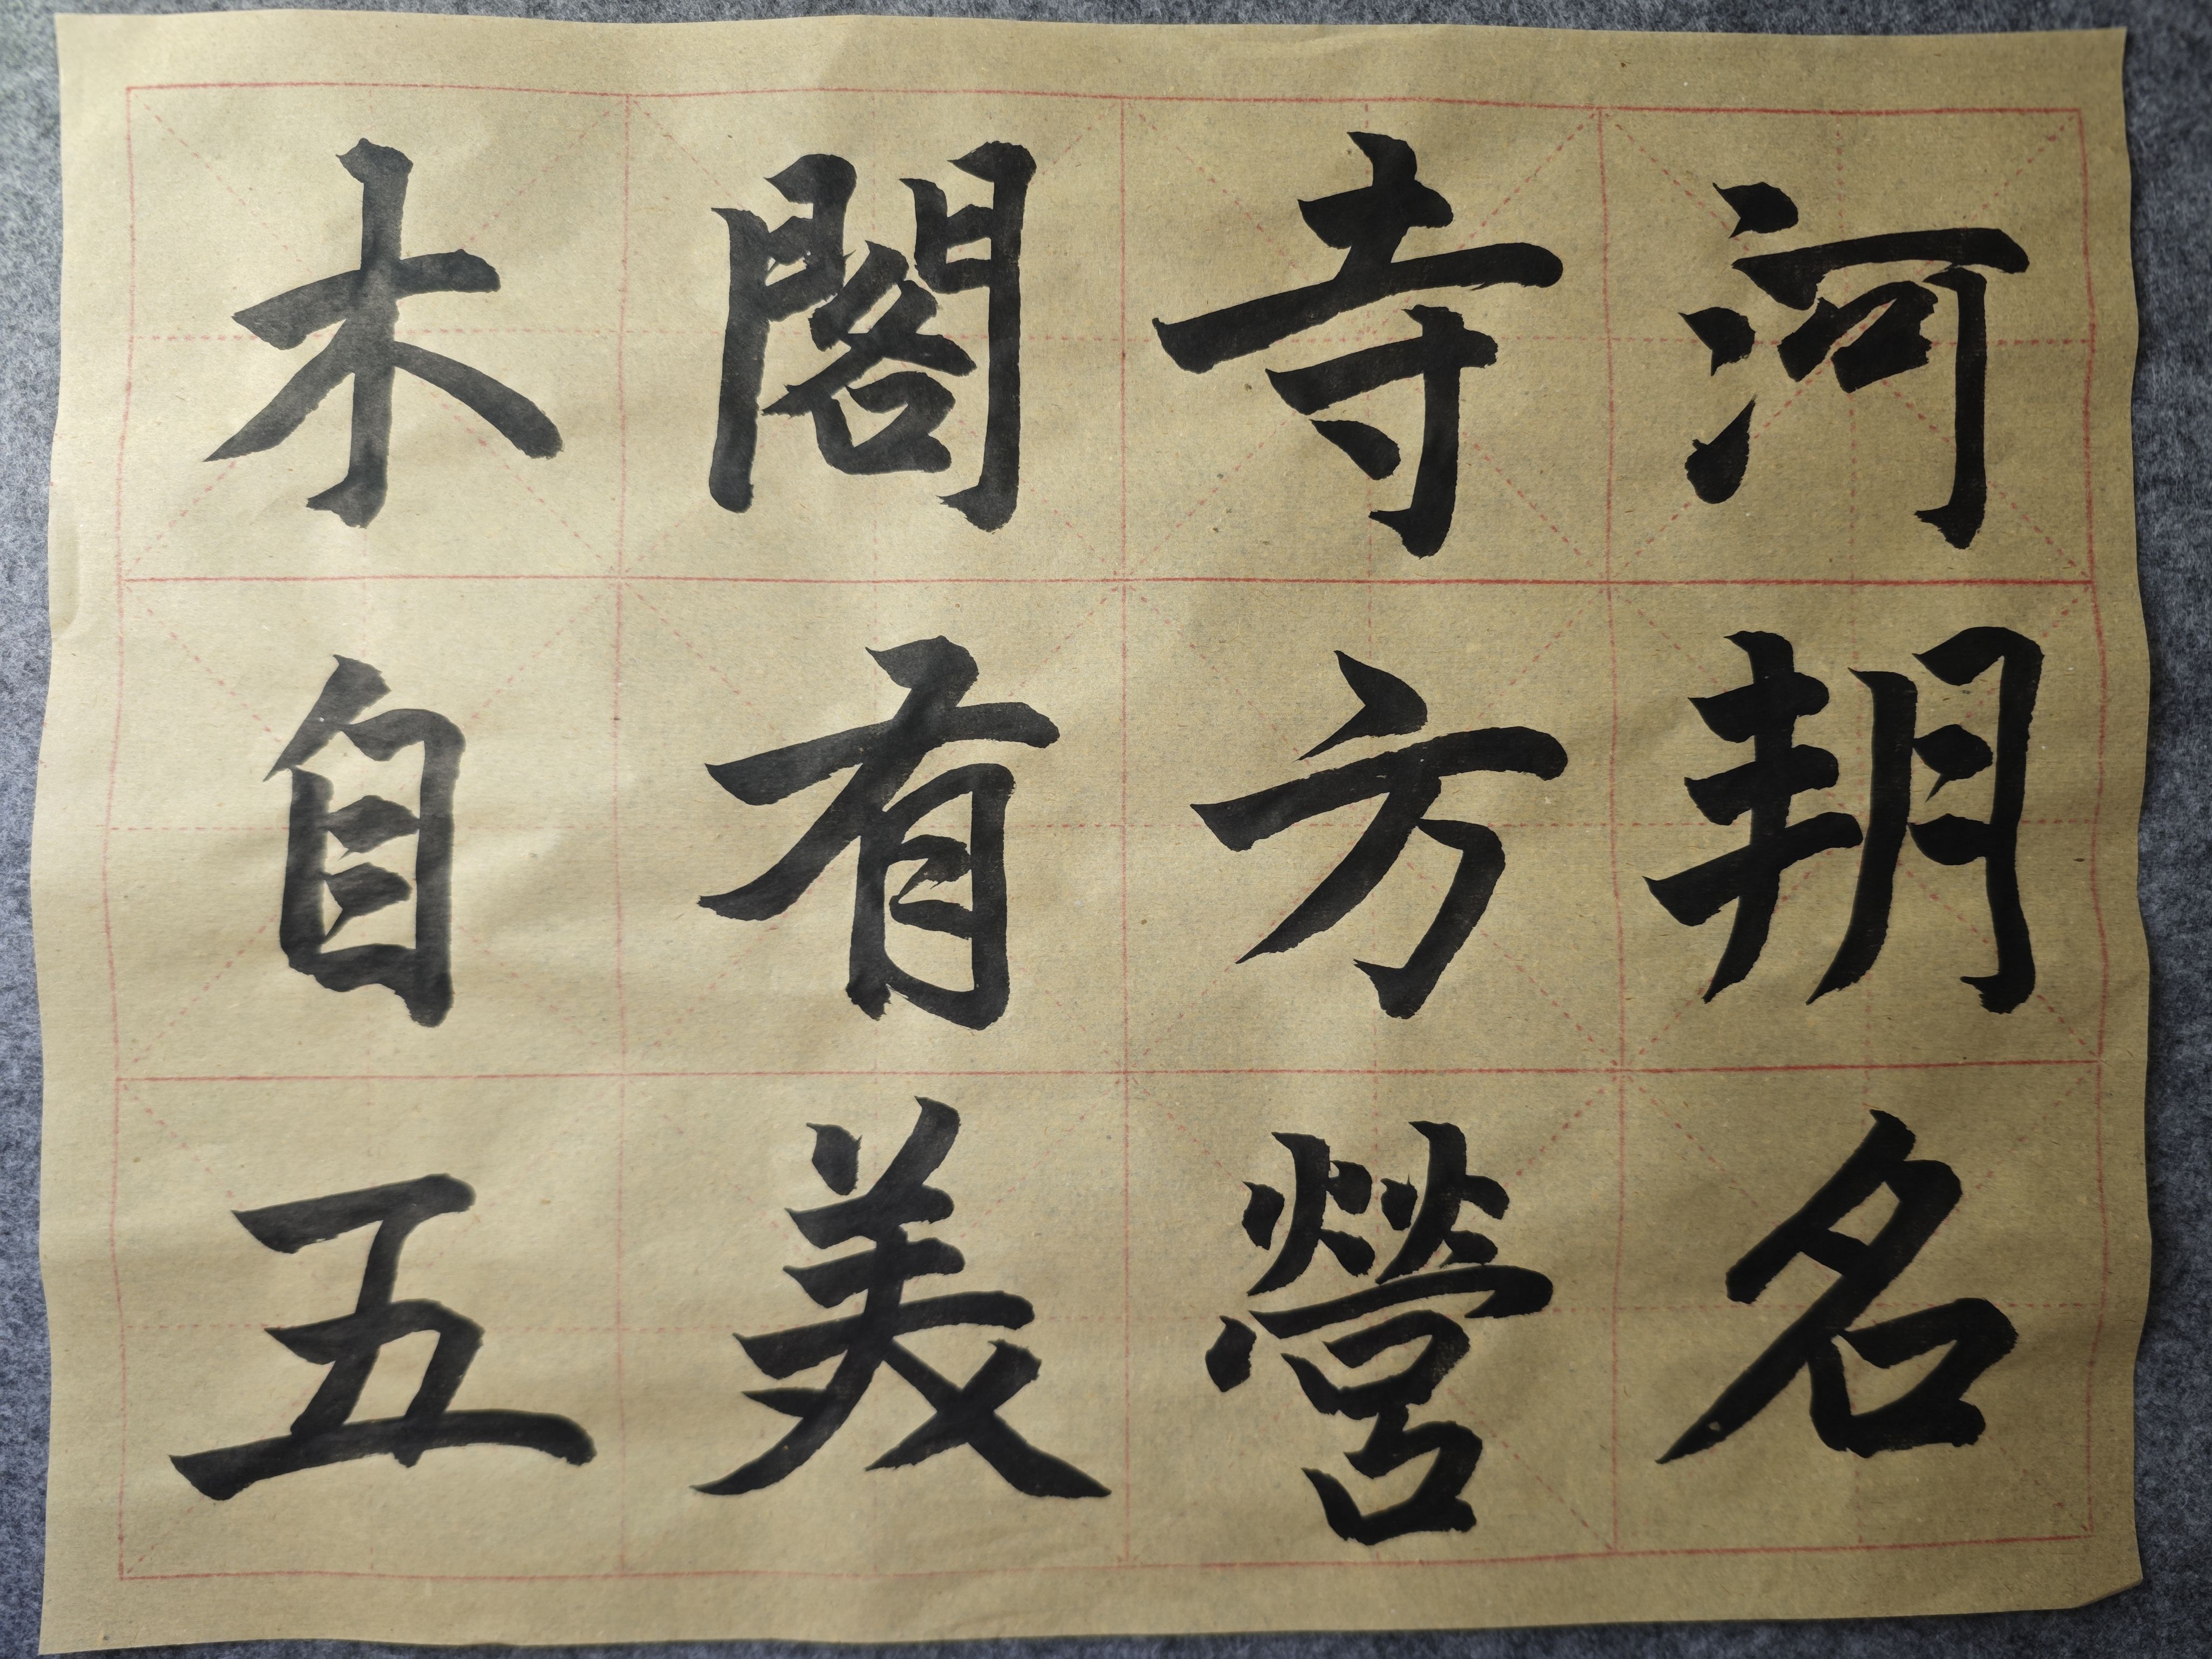 河朔名
寺方營
閣有美
木自五